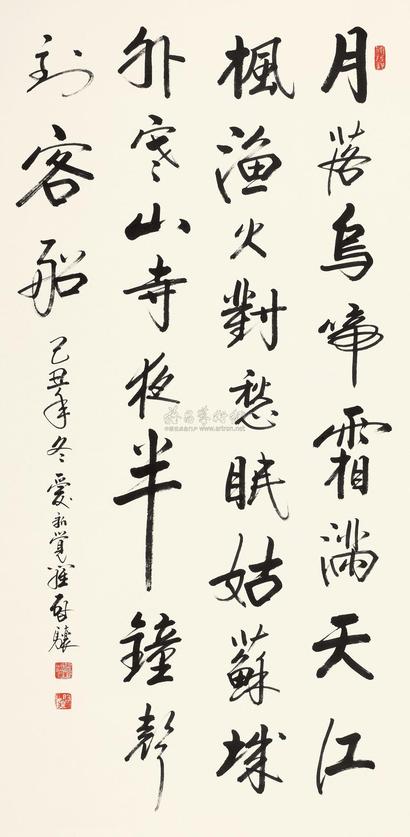 月落烏啼霜滿天江
楓漁火對愁眠姑蘇城
外寒山寺夜半鐘聲
到客船
己丑年冬愛新覺羅啟驤
www.artron.net